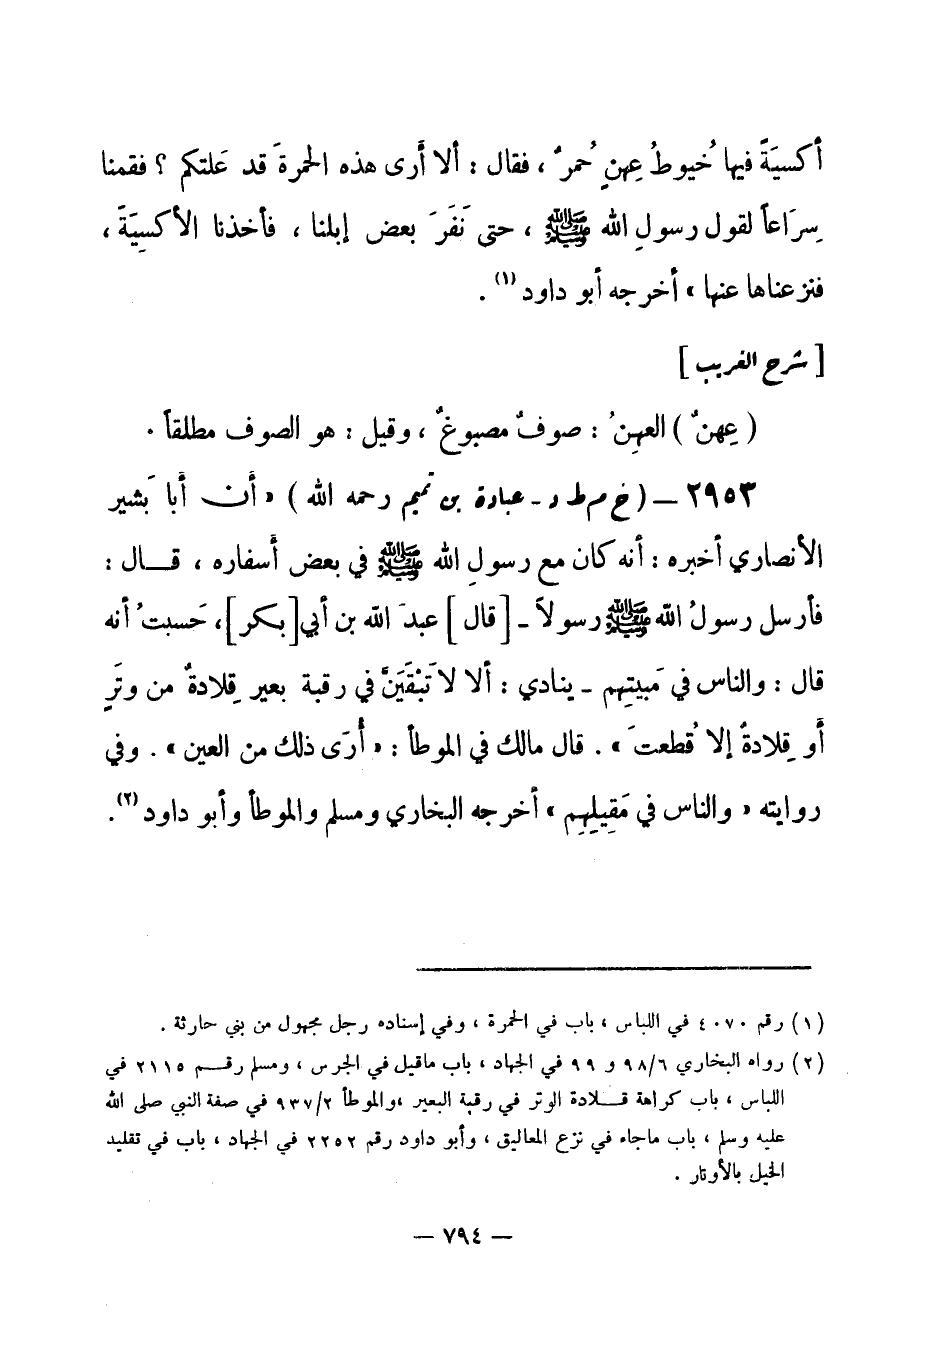 أكسيَةً فيها خُيوطُ عِهنٍ حُمرٌ ، فقال : ألا أَرى هذه الحمرةَ قد عَلتكم ؟ فقمنا
سِرَاعاً لقول رسولِ الله ﷺ ، حتى نَفَرَ بعض إبلنا ، فأخذنا الأكسِيَةَ ،
فنزعناها عنها » أخرجه أبو داود (١) .
[ شرح الغريب ]
( عِهنٌ ) العِهنُ : صوفٌ مصبوغٌ ، وقيل : هو الصوف مطلقاً .
٢٩٥٣ ــ ( خ م ط د ـ عبادة بن تميم رحمه الله ) « أَن أَبا بَشير
الأنصاري أخبره : أنه كان مع رسولِ الله ﷺ في بعض أَسفاره ، قـــال :
فأرسل رسولُ الله ﷺ رسولاً ـ [ قال ] عبدَ الله بن أبي [ بكر ] ، حَسبتُ أنه
قال : والناس في مَبيتِهم ـ ينادي : ألا لا تَبْقَيَنَّ في رقبة بعير قِلادةٌ من وتَرٍ
أَو قِلادةٌ إلا قُطعتَ » . قال مالك في الموطأ : « أُرَى ذلك من العين » . وفي
روايته « والناس في مَقِيلِهِم » أخرجه البخاري ومسلم والموطأ وأبو داود (٢) .
(١) رقم ٤٠٧٠ في اللباس ، باب في الحمرة ، وفي إسناده رجل مجهول من بني حارثة .
(٢) رواه البخاري ٩٨/٦ و ٩٩ في الجهاد ، باب ماقيل في الجرس ، ومسلم رقـــم ٢١١٥ في
اللباس ، باب كراهة قـــلادة الوتر في رقبة البعير ،والموطأ ٩٣٧/٢ في صفة النبي صلى الله
عليه وسلم ، باب ماجاء في نزع المعاليق ، وأبو داود رقم ٢٢٥٢ في الجهاد ، باب في تقليد
الخيل بالأوتار .
— ٧٩٤ —